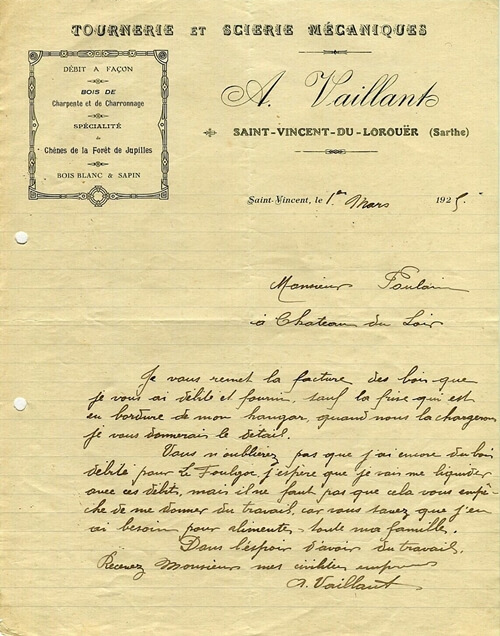 TOURNERIE ET SCIERIE MÉCANIQUES
DÉBIT A FAÇON
BOIS DE
Charpente et de Charronnage
SPÉCIALITÉ
de
Chênes de la Forêt de Jupilles
BOIS BLANC & SAPIN
A. Vaillant
SAINT-VINCENT-DU-LOROUËR (Sarthe)
Saint-Vincent, le 1er Mars 1925
Monsieur Poulain
à Chateau du Loir
Je vous remet la facture des bois que
je vous ai débité et fournin, sauf la frise qui est
en bordure de mon hangar, quand nous la chargerons
je vous donnerais le détail.
Vous n'oublierez pas que j'ai encore du bois
débité pour le j'espère que je vais me liquider
avec ces débits, mais il ne faut pas que cela vous empê-
che de me donner du travail, car vous savez que j'en
ai besoin pour alimenter toute ma famille.
Dans l'espoir d'avoir du travail.
Recevez Monsieur mes civilités
A. Vaillant